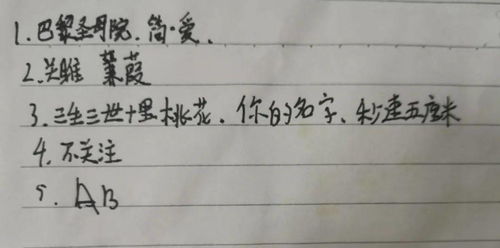 1.巴黎圣母院.简·爱.
2.关雎 蒹葭
3.三生三世十里桃花.你的名字.秒速五厘米
4.不关注
5.AB